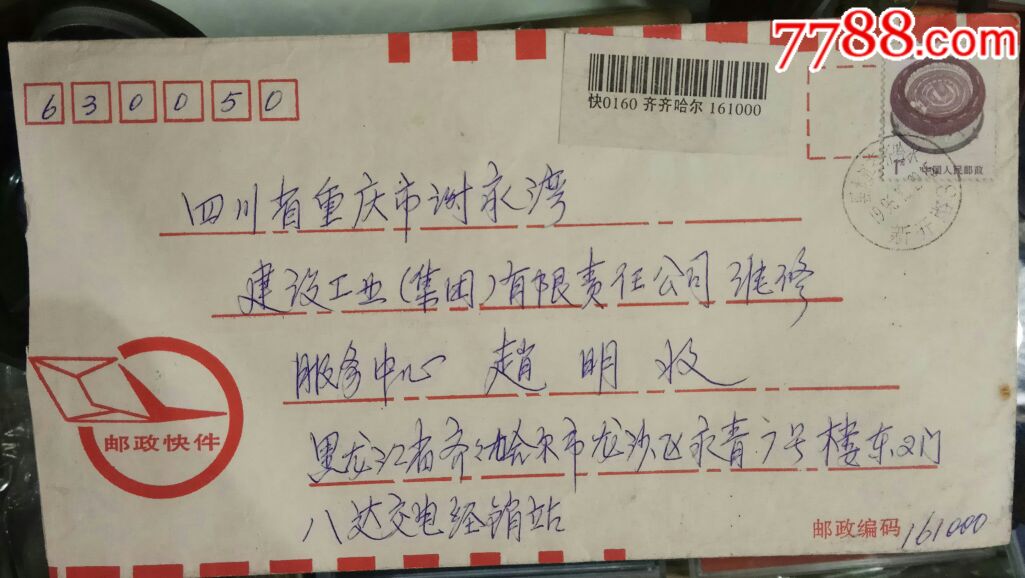 7788.com
630050
快0160 齐齐哈尔 161000
1元
中国人民邮政
四川省重庆市谢家湾
建设工业(集团)有限责任公司维修
服务中心 赵 明 收
邮政快件
黑龙江省齐齐哈尔市龙沙区永青6号楼东门
八达交电经销站
邮政编码 161000